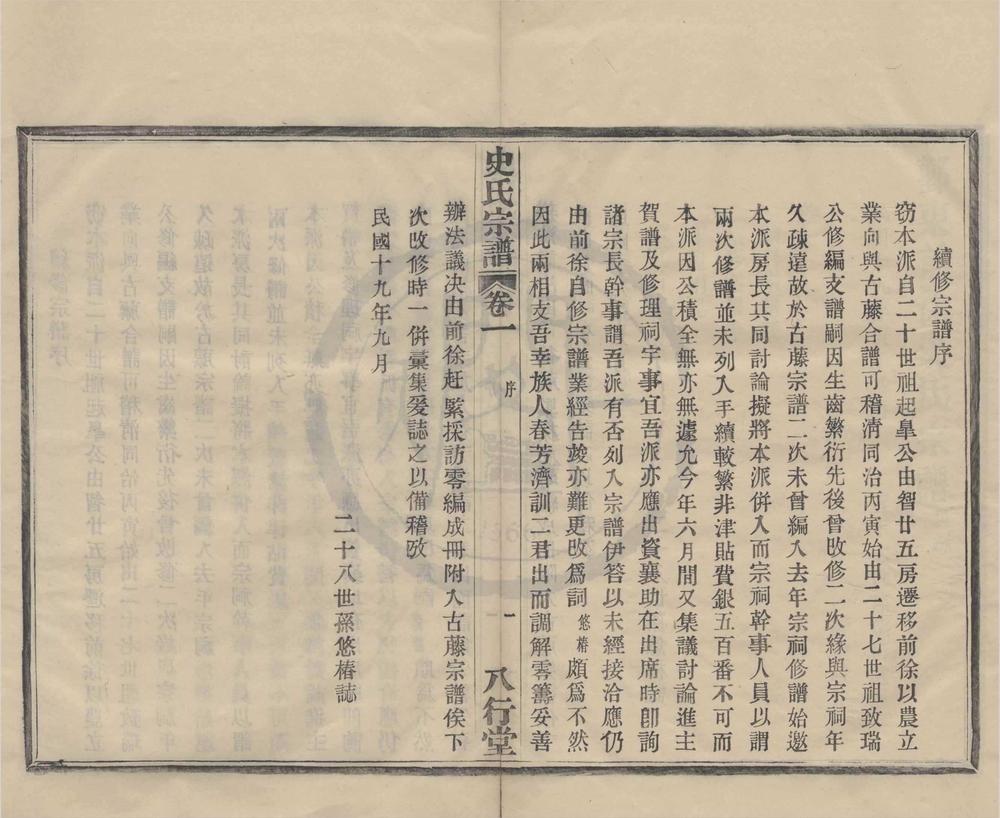 續修宗譜序
窃本派自二十世祖起臯公由智廿五房遷移前徐以農立
業向與古藤合譜可稽清同治丙寅始由二十七世祖致瑞
公修編支譜嗣因生齒繁衍先後曾改修二次緣與宗祠年
久疎遠故於古藤宗譜二次未曾編入去年宗祠修譜始邀
本派房長其同討論擬將本派併入而宗祠幹事人員以謂
兩次修譜並未列入手續較繁非津貼費銀五百番不可而
本派因公積全無亦無遽允今年六月間又集議討論進主
賀譜及修理祠宇事宜吾派亦應出資襄助在出席時卽詢
諸宗長幹事謂吾派有否列入宗譜伊答以未經接洽應仍
由前徐自修宗譜業經告竣亦難更改爲詞悠椿頗爲不然
因此兩相支吾幸族人春芳濟訓二君出而調解零籌妥善
史氏宗譜 卷一 序 一 八行堂
辦法議決由前徐赶緊採訪零編成冊附入古藤宗譜俟下
次改修時一併彙集爰誌之以備稽攷
民國十九年九月
二十八世孫悠椿誌